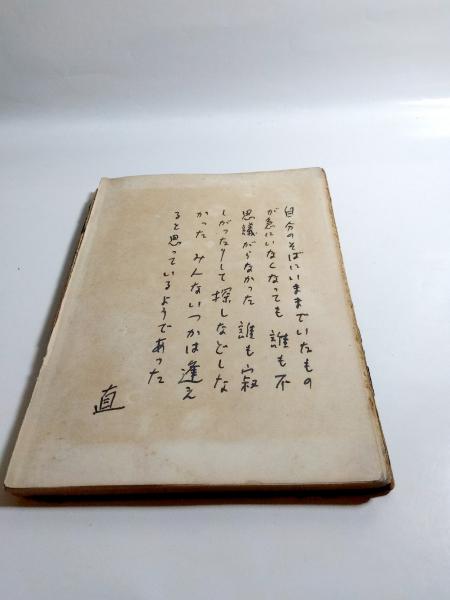 自分のそばにいままでいたもの
が急にいなくなっても 誰も不
思議がらなかった 誰も寂
しがったりして探しなどしな
かった みんないつかは逢え
ると思っているようであった
直